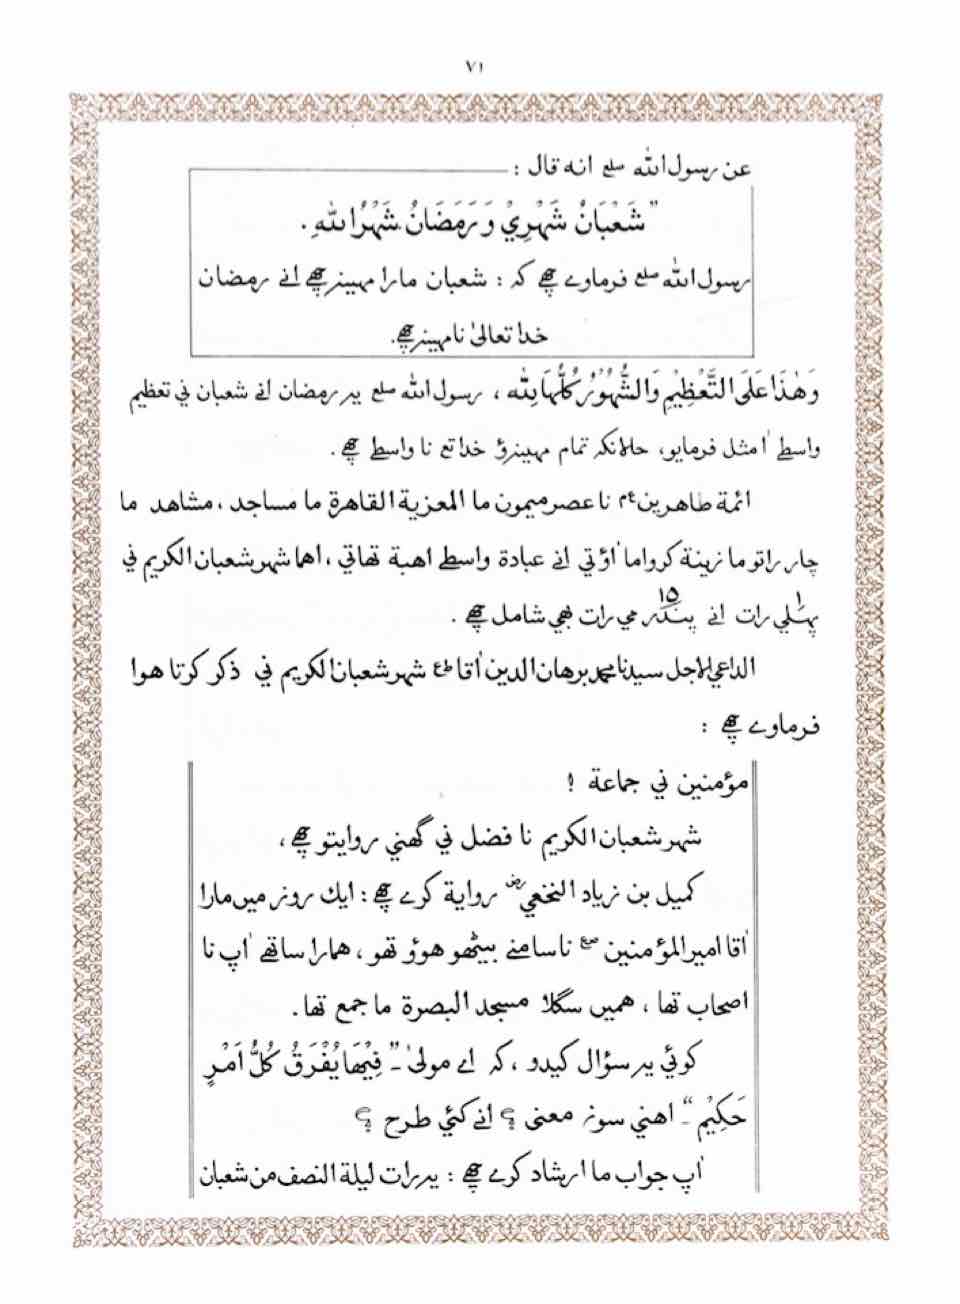 ٧١
عن رسول الله صلع انه قال :
"شَعْبَانُ شَهْرِيْ وَ رَمَضَانُ شَهْرُ اللهِ.
رسول الله صلع فرماوے چھے کہ : شعبان مارا مہینہ چھے انے رمضان
خدا تعالىٰ نا مہینہ چھے.
وَهٰذَا عَلَى التَّعْظِيْمِ وَالشُّهُوْرُ كُلُّهَا لِلّٰه ، رسول الله صلع یہ رمضان انے شعبان ني تعظيم
واسطے اٰمثل فرمايو، حالانکہ تمام مہینہؤ خدا تع نا واسطے چھے .
ائمة طاهرين ع م نا عصر ميمون ما المعزية القاهرة ما مساجد ، مشاهد ما
چار راتو ما زينة کروا ما اٰؤتي انے عبادة واسطے اهبة تھاتي ، اهما شهر شعبان الكريم ني
پہلي ١ رات انے پندر ١٥ مي رات بھي شامل چھے .
الداعي الاجل سيدنا محمد برهان الدين اٰقا طع شهر شعبان الكريم ني ذكر كرتا هوا
فرماوے چھے :
مؤمنين ني جماعة !
شهر شعبان الكريم نا فضل ني گھني روايتو چھے ،
كميل بن زياد النخعي رض رواية كرے چھے : ايك روز ميں مارا
اٰقا امير المؤمنين صع نا سامنے بيٹھو هوؤ تھو ، همارا ساتھے اٰپ نا
اصحاب تھا ، هميں سگلا مسجد البصرة ما جمع تھا .
كوئي یہ سؤال كيدو ، کہ اے مولىٰ ـ" فِيْهَا يُفْرَقُ كُلُّ اَمْرٍ
حَكِيْمٍ "ـ اهني سوں معنى ؟ انے كئي طرح ؟
اٰپ جواب ما ارشاد كرے چھے : یہ رات ليلة النصف من شعبان